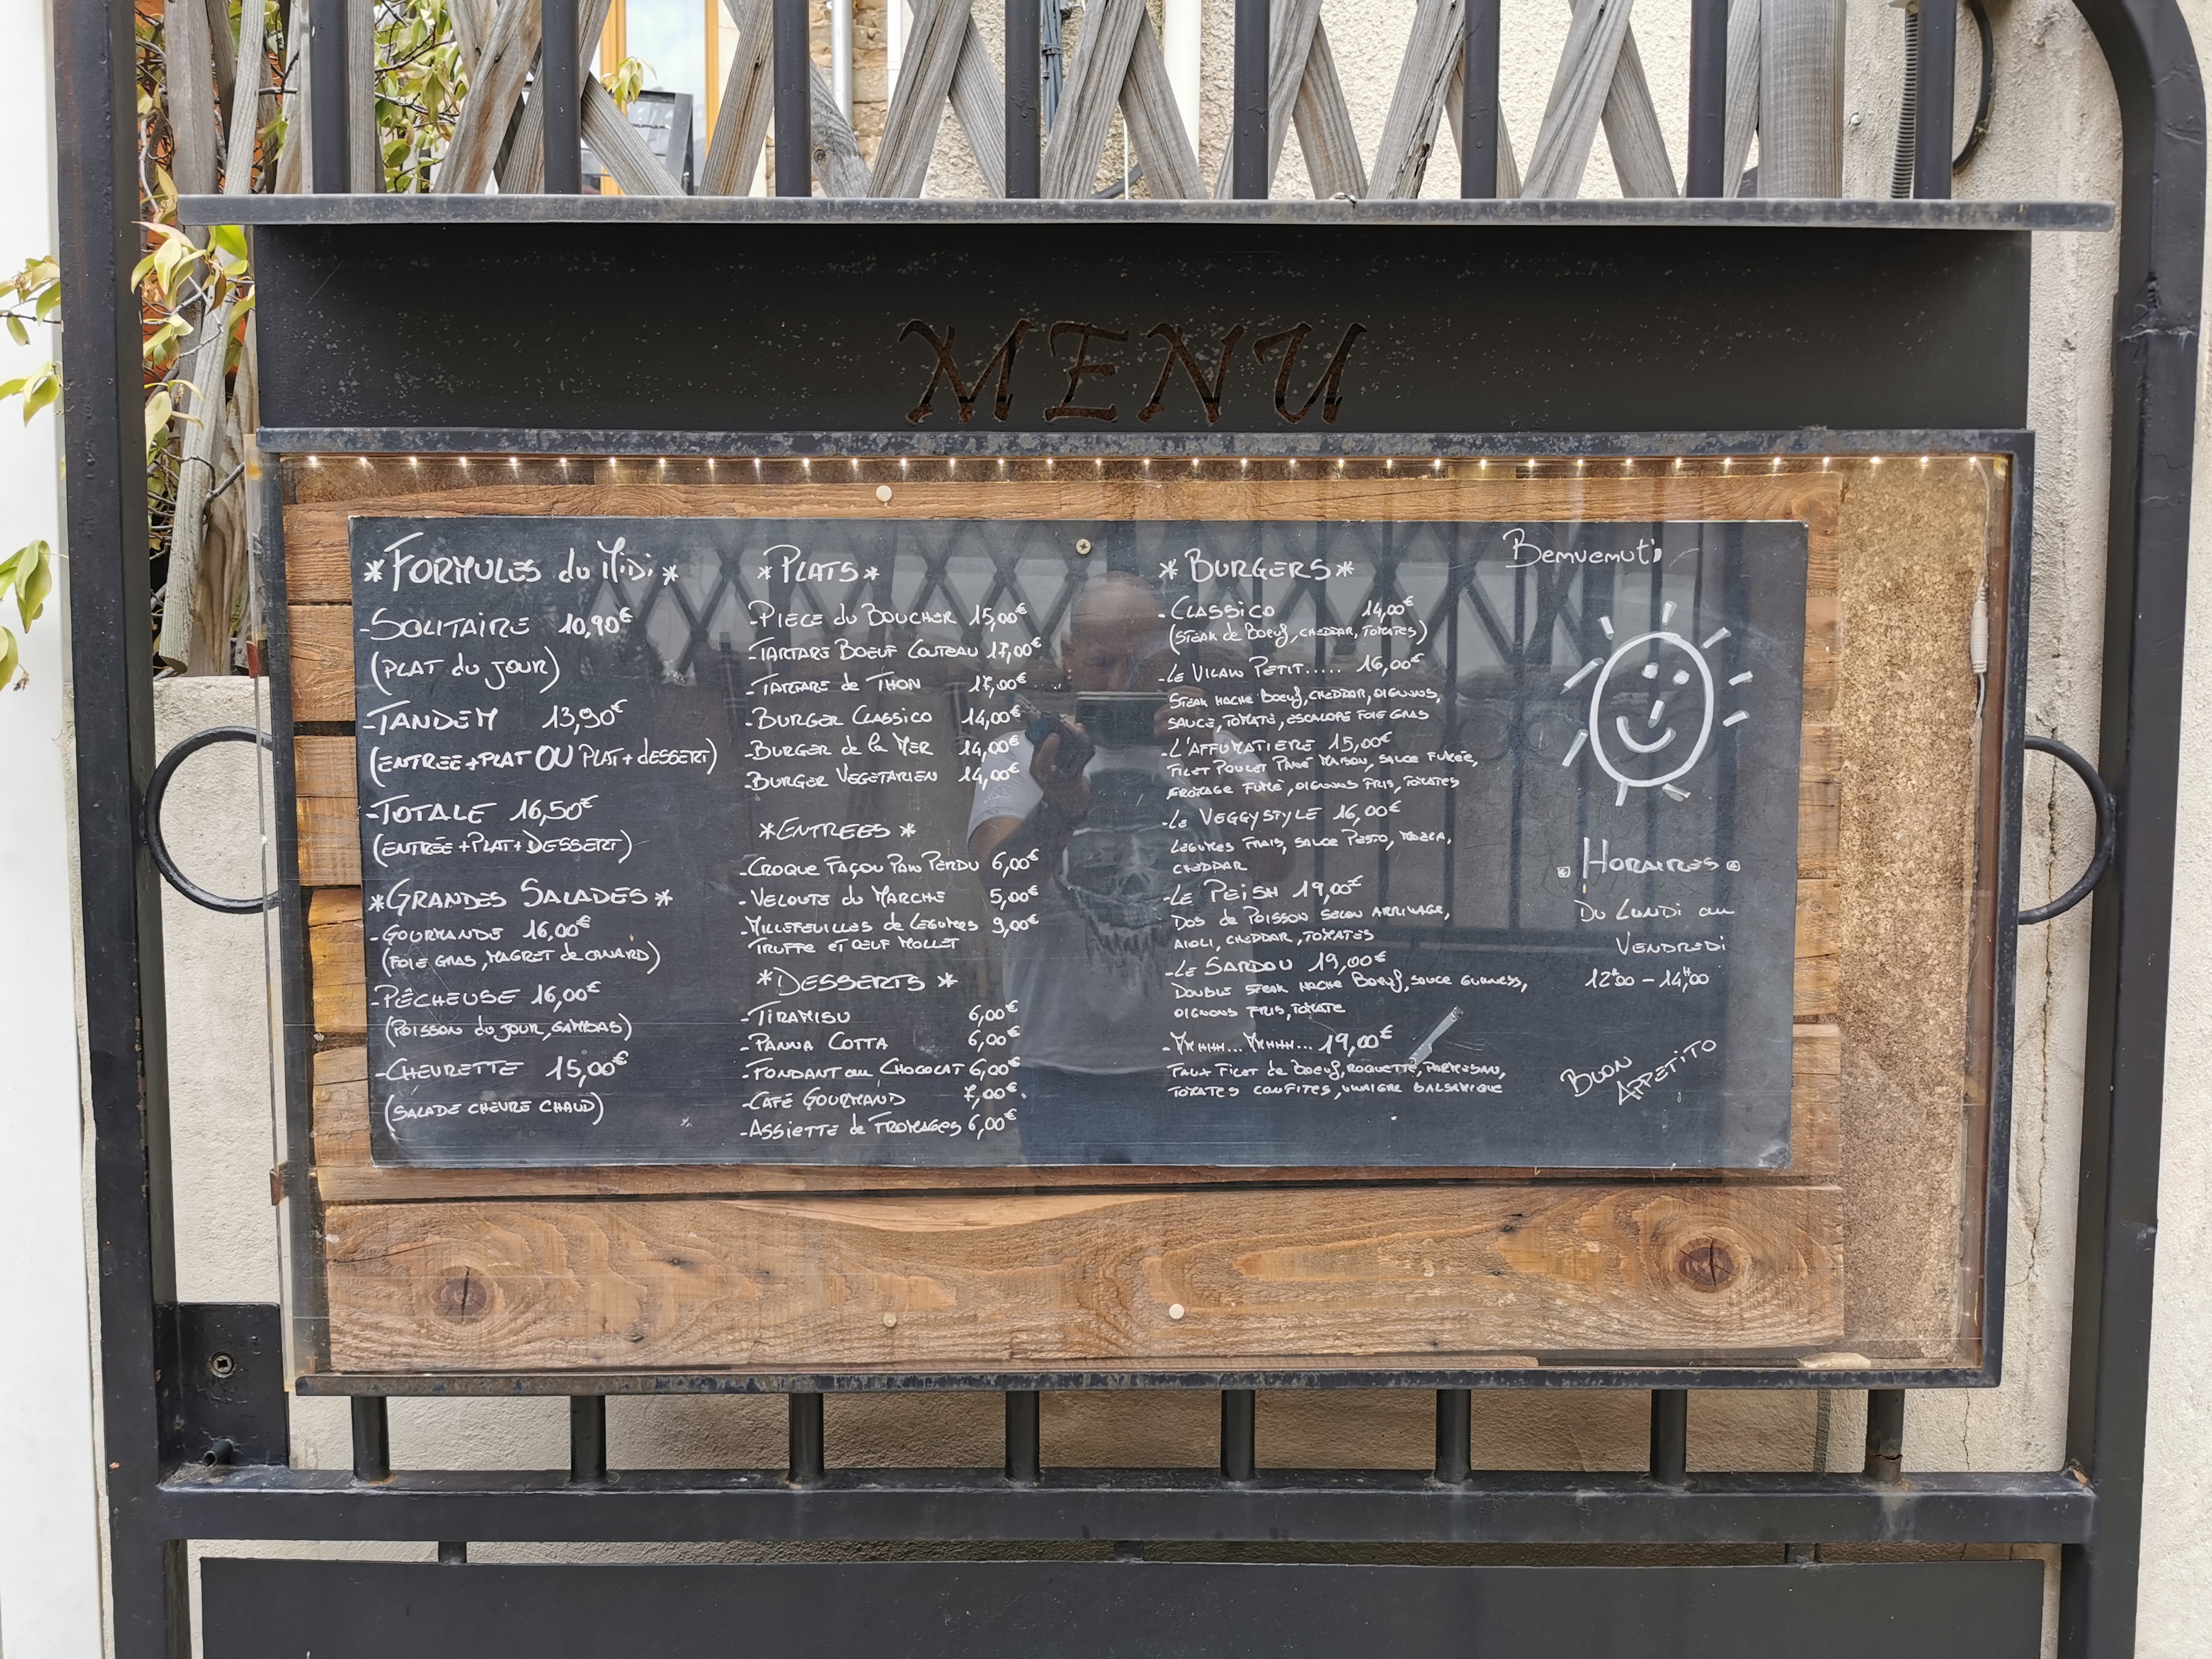 MENU
*FORMULES du Midi*
-SOLITAIRE 10,90€
(PLAT du JOUR)
-TANDEM 13,90€
(ENTREE+PLAT OU PLAT+dESSERT)
-TOTALE 16,50€
(ENTRÉE+PLAT+DESSERT)
*GRANDES SALADES*
-GOURMANDE 16,00€
(FOIE GRAS, MAGRET de CANARD)
-PÊCHEUSE 16,00€
(POISSON du JOUR, GAMBAS)
-CHEVRETTE 15,00€
(SALADE CHEVRE CHAUD)
*PLATS*
-PIECE du BOUCHER 15,00€
-TARTARE BOEUF COUTEAU 17,00€
-TARTARE de THON 17,00€
-BURGER CLASSICO 14,00€
-BURGER de la MER 14,00€
-BURGER VEGETARIEN 14,00€
*ENTREES*
-CROQUE FAÇON PAIN PERDU 6,00€
-VELOUTE du MARCHE 5,00€
-MILLEFEUILLES de LEGUMES 9,00€
TRUFFE ET OEUF MOLLET
*DESSERTS*
-TIRAMISU 6,00€
-PANNA COTTA 6,00€
-FONDANT au CHOCOLAT 6,00€
-CAFÉ GOURMAND 7,00€
-ASSIETTE de FROMAGES 6,00€
*BURGERS*
-CLASSICO 14,00€
(STEAK de Boeuf, CHEDDAR, TOMATES)
-LE VILAIN PETIT..... 16,00€
STEAK HACHE Boeuf, CHEDDAR, OIGNONS,
SAUCE, TOMATE, ESCALOPE FOIE GRAS
-L'AFFUMATIERE 15,00€
FILET POULET PANÉ MAISON, SAUCE FUMÉE,
FROMAGE FUMÉ, OIGNONS FRIS, TOMATES
-LE VEGGYSTYLE 16,00€
LEGUMES FRAIS, SAUCE PESTO,
CHEDDAR
-LE PEISH 19,00€
DOS de POISSON SELON ARRIVAGE,
AIOLI, CHEDDAR, TOMATES
-LE SARDOU 19,00€
DOUBLE STEAK HACHE BOEUf, SAUCE GUINNESS,
OIGNONS FRIS, TOMATE
19,00€
FAUX FILET de Boeuf, ROQUETTE, PARMESAN,
TOMATES CONFITES, VINAIGRE BALSAMIQUE
Bemvemuti
HORAIRES
Du LUNDI au
VENDREDI
12H00 - 14H00
BUON
APPETITO